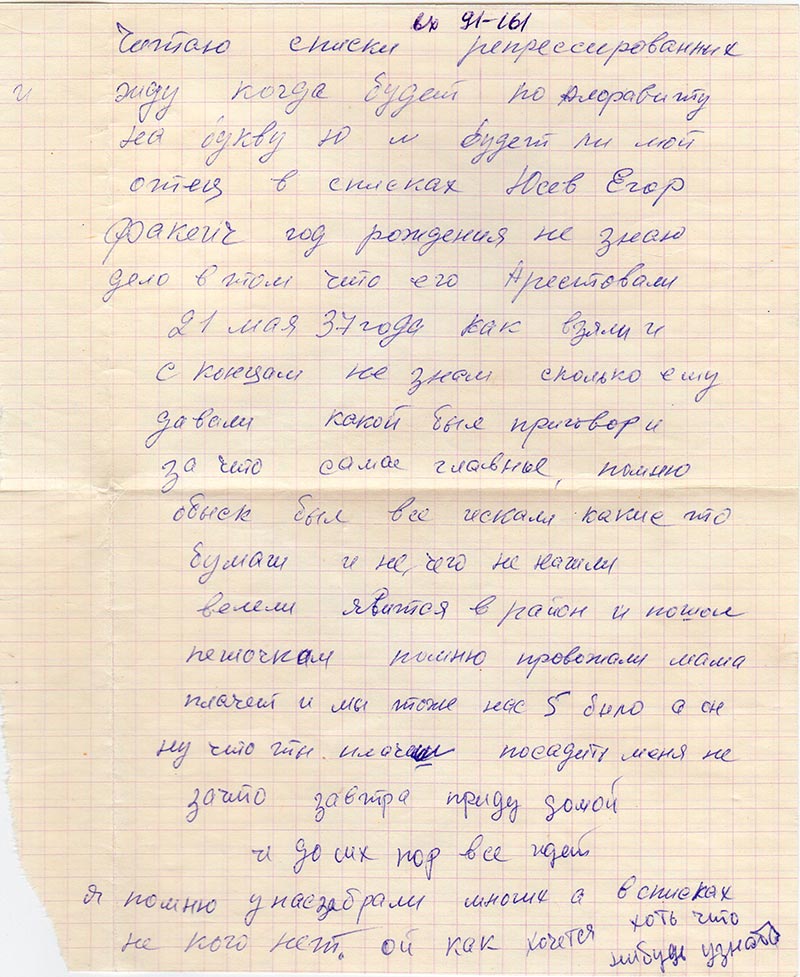 вх 91-161
Читаю списки репрессированних
и жду когда будет по алфравиту
на букву Ю и будет ли мой
отец в списках Юсев Егор
Факеич год рождения не знаю
дело в том что его Арестовали
21 мая 37 года как взяли и
с концам не знам сколько ему
давали какой был приговор и
за что самае главные, помню
обыск был все искали какие то
бумаги и не чего не нашли
велели явится в район и пошол
пешочкам помню провожали мама
плачет и мы тоже нас 5 было а он
ну что ты плачеш посадить меня не
зачто завтра приду домой
и до сих пор все идет
я помню у нас забрали многих а в списках
не кого нет. ой как хочется хоть что
нибудь узнать